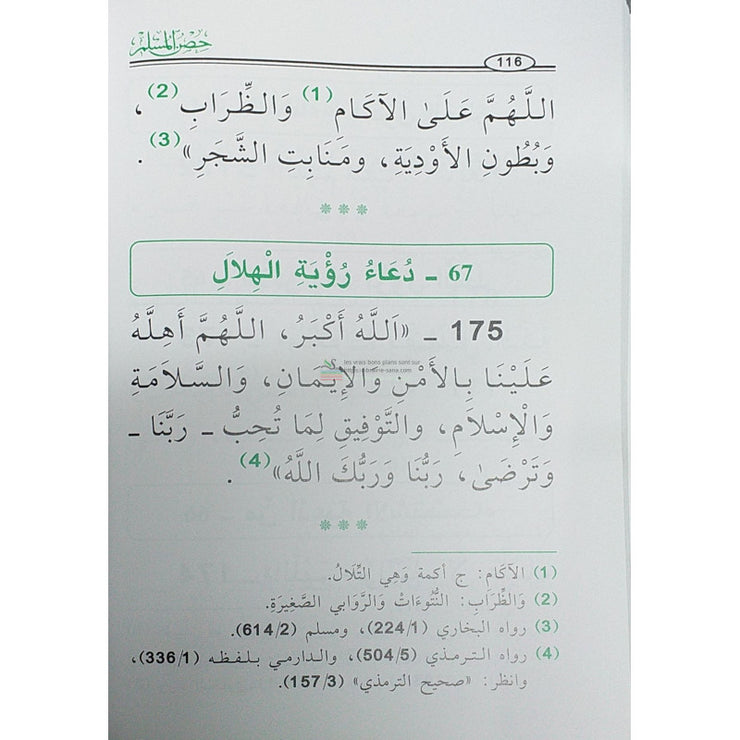 حصن المسلم
116
اللَّهُمَّ عَلَىٰ الآكَامِ (1) وَالظِّرَابِ (2) ،
وَبُطُونِ الأَوْدِيَةِ، وَمَنَابِتِ الشَّجَرِ» (3) .
67 ـ دُعَاءُ رُؤْيَةِ الْهِلالِ
175 ـ «اَللَّهُ أَكْبَرُ، اللَّهُمَّ أَهِلَّهُ
les vrais bons plans sont sur
عَلَيْنَا بِالأَمْنِ وَالإِيمَانِ، وَالسَّلامَةِ
وَالْإِسْلَامِ، والتَّوْفِيقِ لِمَا تُحِبُّ ـ رَبَّنَا ـ
وَتَرْضَىٰ، رَبُّنَا وَرَبُّكَ اللَّهُ» (4) .
(1) الآكَامِ: ج أكمة وَهِي التِّلَالُ.
(2) وَالظِّرَابِ: النُّتُوءَاتُ وَالرَّوَابي الصَّغِيرَةِ.
(3) رواه البخاري (224/1)، ومسلم (614/2).
(4) رواه الترمذي (504/5)، والدارمي بلفظه (336/1)،
وانظر: «صحيح الترمذي» (157/3).